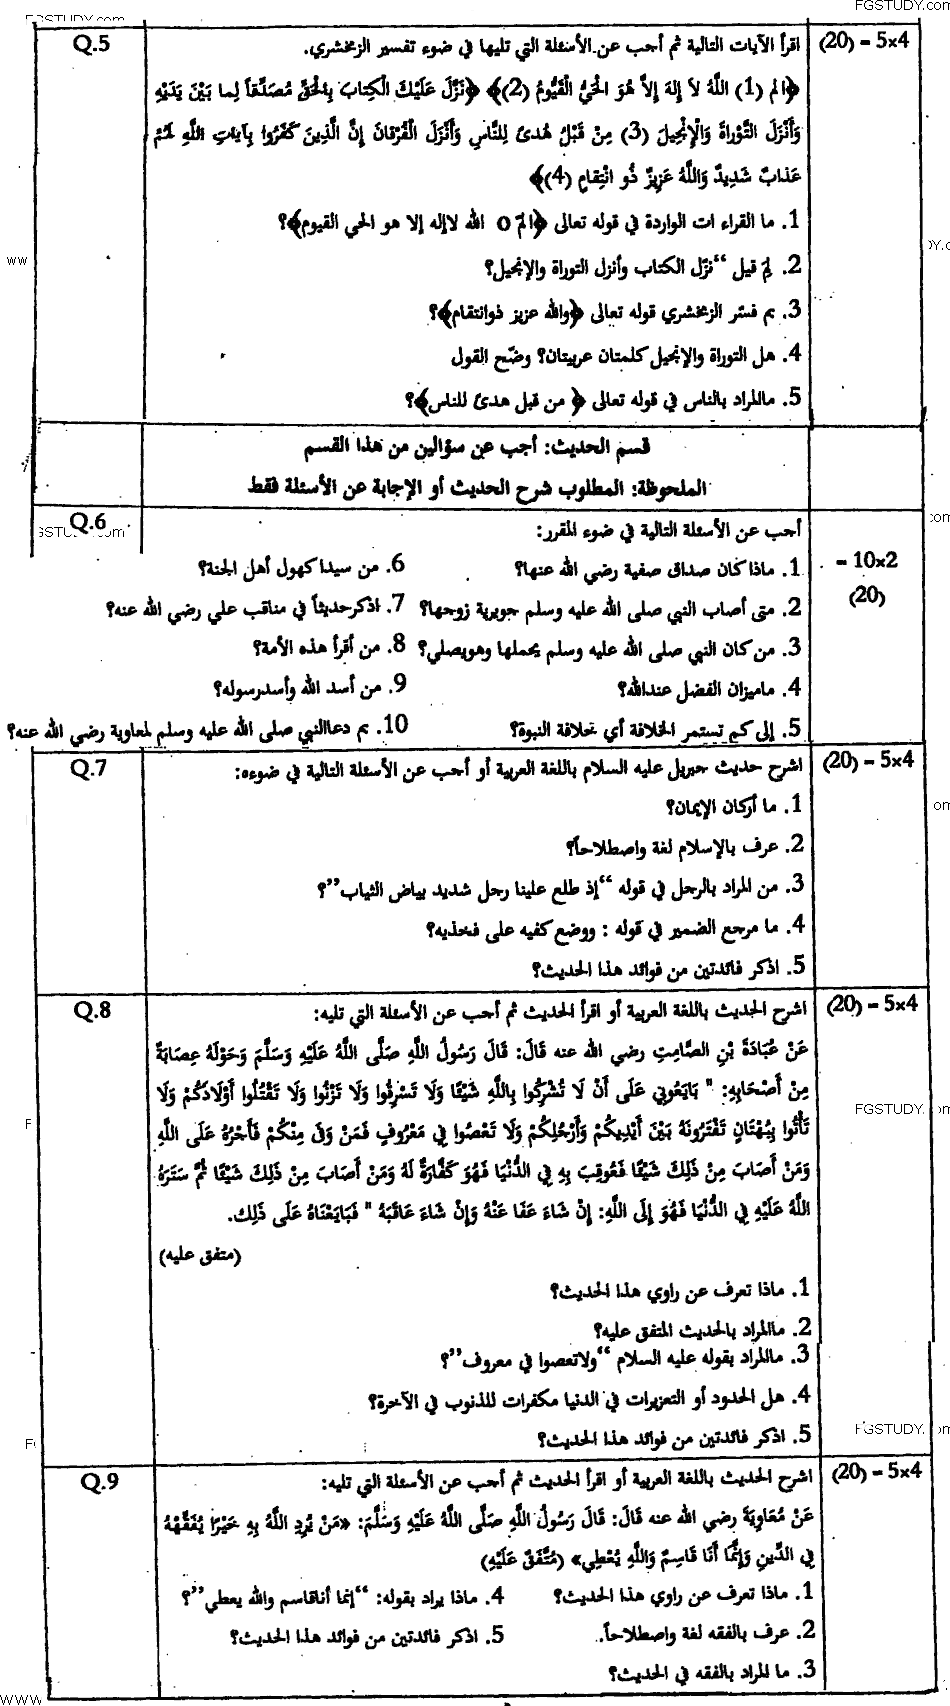 FGSTUDY.com
FGSTUDY.com
Q.5
اقرأ الآيات التالية ثم أجب عن الأسئلة التي تليها في ضوء تفسير الزمخشري.
(20) = 5x4
﴿الم (1) اللَّهُ لاَ إِلهَ إِلاَّ هُوَ الْحَيُّ الْقَيُّومُ (2)﴾ ﴿نَزَّلَ عَلَيْكَ الْكِتَابَ بِالْحَقِّ مُصَدِّقاً لِما بَيْنَ يَدَيْهِ
وَأَنْزَلَ التَّوْراةَ وَالْإِنْجِيلَ (3) مِنْ قَبْلُ هُدىً لِلنَّاسِ وَأَنْزَلَ الْفُرْقانَ إِنَّ الَّذِينَ كَفَرُوا بِآيَاتِ اللَّهِ لَهُمْ
عَذابٌ شَدِيدٌ وَاللَّهُ عَزِيزٌ ذُو انْتِقامٍ (4)﴾
1. ما القراء ات الواردة في قوله تعالى ﴿المّ O الله لاإله إلا هو الحي القيوم﴾؟
2. لِمَ قيل "نزّل الكتاب وأنزل التوراة والإنجيل؟
3. بم فسّر الزمخشري قوله تعالى ﴿والله عزيز ذوانتقام﴾؟
4. هل التوراة والإنجيل كلمتان عربيتان؟ وضّح القول
5. ماالمراد بالناس في قوله تعالى ﴿ من قبل هدىً للناس﴾؟
قسم الحديث: أجب عن سؤالين من هذا القسم
الملحوظة: المطلوب شرح الحديث أو الإجابة عن الأسئلة فقط
Q.6
أجب عن الأسئلة التالية في ضوء المقرر:
= 10x2
(20)
1. ماذا كان صداق صفية رضي الله عنها؟
6. من سيدا كهول أهل الجنة؟
2. متى أصاب النبي صلى الله عليه وسلم جويرية زوجها؟
7. اذكرحديثاً في مناقب علي رضي الله عنه؟
3. من كان النبي صلى الله عليه وسلم يحملها وهويصلي؟
8. من أقرأ هذه الأمة؟
4. ماميزان الفضل عندالله؟
9. من أسد الله وأسدرسوله؟
5. إلى كم تستمر الخلافة أي خلافة النبوة؟
10. بم دعاالنبي صلى الله عليه وسلم لمعاوية رضي الله عنه؟
Q.7
اشرح حديث جبريل عليه السلام باللغة العربية أو أجب عن الأسئلة التالية في ضوءه:
(20) = 5x4
1. ما أركان الإيمان؟
2. عرف بالإسلام لغة واصطلاحاً؟
3. من المراد بالرجل في قوله "إذ طلع علينا رجل شديد بياض الثياب"؟
4. ما مرجع الضمير في قوله : ووضع كفيه على فخذيه؟
5. اذكر فائدتين من فوائد هذا الحديث؟
Q.8
اشرح الحديث باللغة العربية أو اقرأ الحديث ثم أجب عن الأسئلة التي تليه:
(20) = 5x4
عَنْ عُبَادَةَ بْنِ الصَّامِتِ رضي الله عنه قَالَ: قَالَ رَسُولُ اللَّهِ صَلَّى اللَّهُ عَلَيْهِ وَسَلَّمَ وَحَوْلَهُ عِصَابَةٌ
مِنْ أَصْحَابِهِ: " بَايَعُونِي عَلَى أَنْ لَا تُشْرِكُوا بِاللَّهِ شَيْئًا وَلَا تَسْرِقُوا وَلَا تَزْنُوا وَلَا تَقْتُلُوا أَوْلَادَكُمْ وَلَا
تَأْتُوا بِبُهْتَانٍ تَفْتَرُونَهُ بَيْنَ أَيْدِيكُمْ وَأَرْجُلِكُمْ وَلَا تَعْصُوا فِي مَعْرُوفٍ فَمَنْ وَفَى مِنْكُمْ فَأَجْرُهُ عَلَى اللَّهِ
وَمَنْ أَصَابَ مِنْ ذَلِكَ شَيْئًا فَعُوقِبَ بِهِ فِي الدُّنْيَا فَهُوَ كَفَّارَةٌ لَهُ وَمَنْ أَصَابَ مِنْ ذَلِكَ شَيْئًا ثُمَّ سَتَرَهُ
اللَّهُ عَلَيْهِ فِي الدُّنْيَا فَهُوَ إِلَى اللَّهِ: إِنْ شَاءَ عَفَا عَنْهُ وَإِنْ شَاءَ عَاقَبَهُ " فَبَايَعْنَاهُ عَلَى ذَلِكَ.
(متفق عليه)
1. ماذا تعرف عن راوي هذا الحديث؟
2. ماالمراد بالحديث المتفق عليه؟
3. ماالمراد بقوله عليه السلام "ولاتعصوا في معروف"؟
4. هل الحدود أو التعزيرات في الدنيا مكفرات للذنوب في الآخرة؟
5. اذكر فائدتين من فوائد هذا الحديث؟
Q.9
اشرح الحديث باللغة العربية أو اقرأ الحديث ثم أجب عن الأسئلة التي تليه:
(20) = 5x4
عَنْ مُعَاوِيَةَ رضي الله عنه قَالَ: قَالَ رَسُولُ اللَّهِ صَلَّى اللَّهُ عَلَيْهِ وَسَلَّمَ: «مَنْ يُرِدِ اللَّهُ بِهِ خَيْرًا يُفَقِّهْهُ
فِي الدِّينِ وَإِنَّمَا أَنَا قَاسِمٌ وَاللَّهِ يُعْطِي» (مُتَّفَقٌ عَلَيْهِ)
1. ماذا تعرف عن راوي هذا الحديث؟
4. ماذا يراد بقوله: "إنما أناقاسم والله يعطي"؟
2. عرف بالفقه لغة واصطلاحاً.
5. اذكر فائدتين من فوائد هذا الحديث؟
3. ما المراد بالفقه في الحديث؟